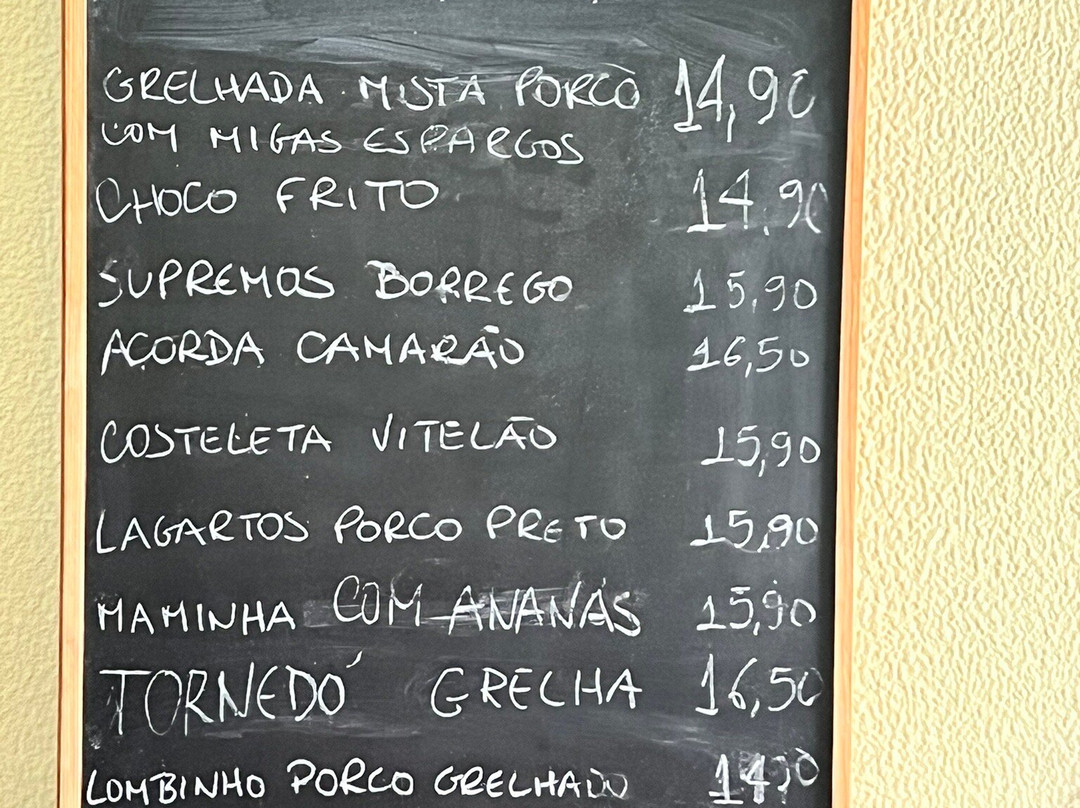 GRELHADA MISTA PORCO 14,90
COM MIGAS ESPARGOS
CHOCO FRITO 14,90
SUPREMOS BORREGO 15,90
AÇORDA CAMARÃO 16,50
COSTELETA VITELÃO 15,90
LAGARTOS PORCO PRETO 15,90
MAMINHA COM ANANÁS 15,90
TORNEDÓ GRELHA 16,50
LOMBINHO PORCO GRELHADO